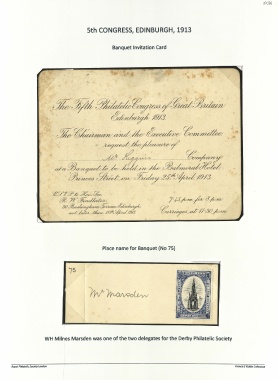 5th CONGRESS, EDINBURGH, 1913
Banquet Invitation Card
The Fifth Philatelic Congress of Great Britain
Edinburgh 1913.
The Chairman and the Executive Committee
request the pleasure of
Company
at a Banquet to be held in the Balmoral Hotel,
Princes Street, on Friday 25th April 1913.
7.45 p.m. for 8 p.m.
Carriages at 11.30 p.m.
Place name for Banquet (No 75)
75
Mr Marsden
WH Milnes Marsden was one of the two delegates for the Derby Philatelic Society